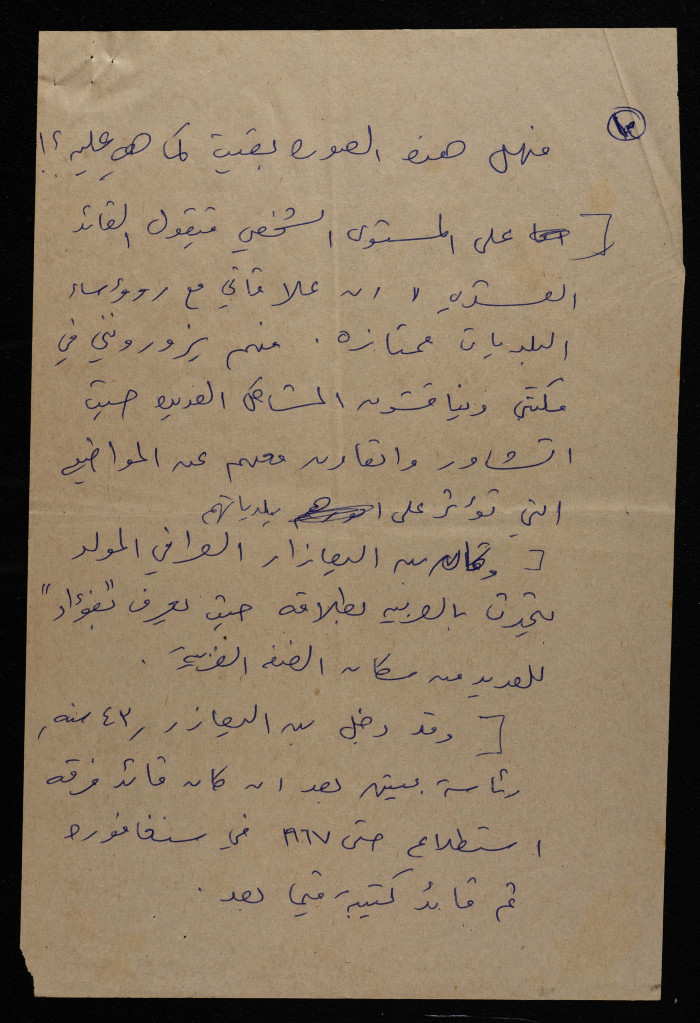 ١٣
فهل هذه الصوره بقيت كما هي عليه ؟!
[ على المستوى الشخصي فيقول القائد
العسكري " ان علاقاتي مع رووساء
البلديات ممتازه . فهم يزورونني في
مكتبي ويناقشون المشاكل العديده حيث
اتشاور واتعاون معهم عن المواضيع
التي تؤثر على بلدياتهم
[ وكان بن اليعازار العراقي المولد
يتحدث بالعربيه بطلاقه حيث يعرف "بفؤاد"
للعديد من سكان الضفه الغربية .
[ وقد دخل بن اليعازر ,٤٣ سنه,
رئاسة بعد ان كان قائد فرقه
استطلاع حتى ١٩٦٧ في سنغافوره
ثم قائد كتيبة فيما بعد .